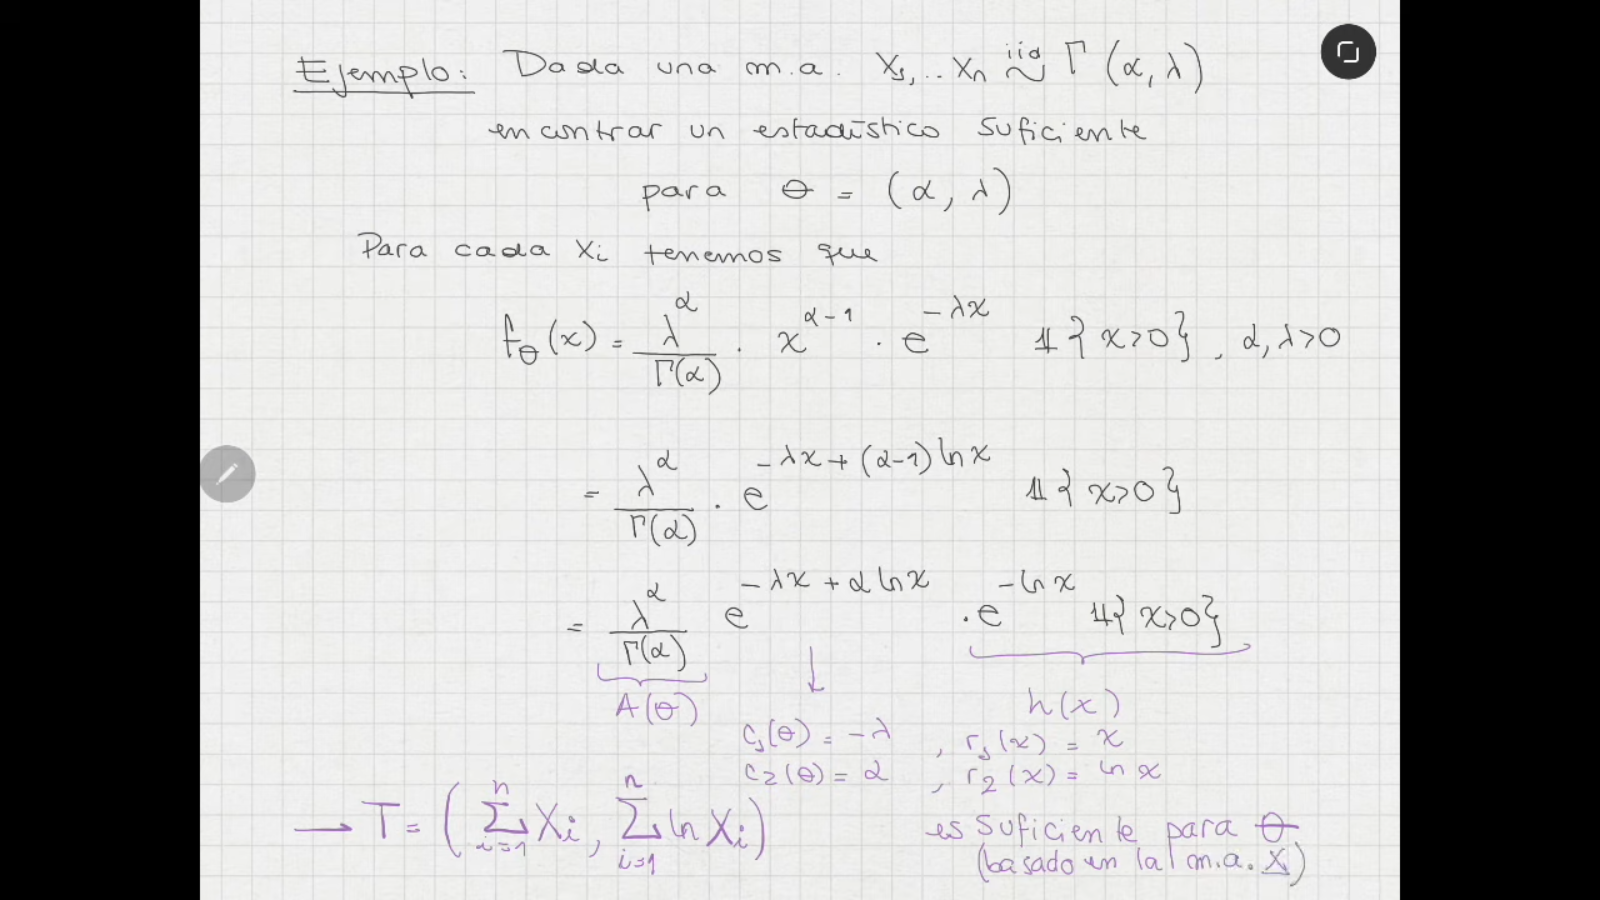 Ejemplo: Dada una m.a. X₁,..Xₙ iid ~ Γ(α, λ)
encontrar un estadístico suficiente
para θ = (α, λ)
Para cada Xi tenemos que
f_θ(x) = λ^α / Γ(α) · x^(α-1) · e^(-λx) 𝟙{x>0}, α, λ>0
= λ^α / Γ(α) · e^(-λx+(α-1)ln x) 𝟙{x>0}
= λ^α / Γ(α) e^(-λx+α ln x) · e^(-ln x) 𝟙{x>0}
A(θ) ↓ h(x)
c₁(θ) = -λ , r₁(x) = x
c₂(θ) = α , r₂(x) = ln x
→ T = (∑_{i=1}^n Xi, ∑_{i=1}^n ln Xi) es suficiente para θ
(basado en la m.a. X)